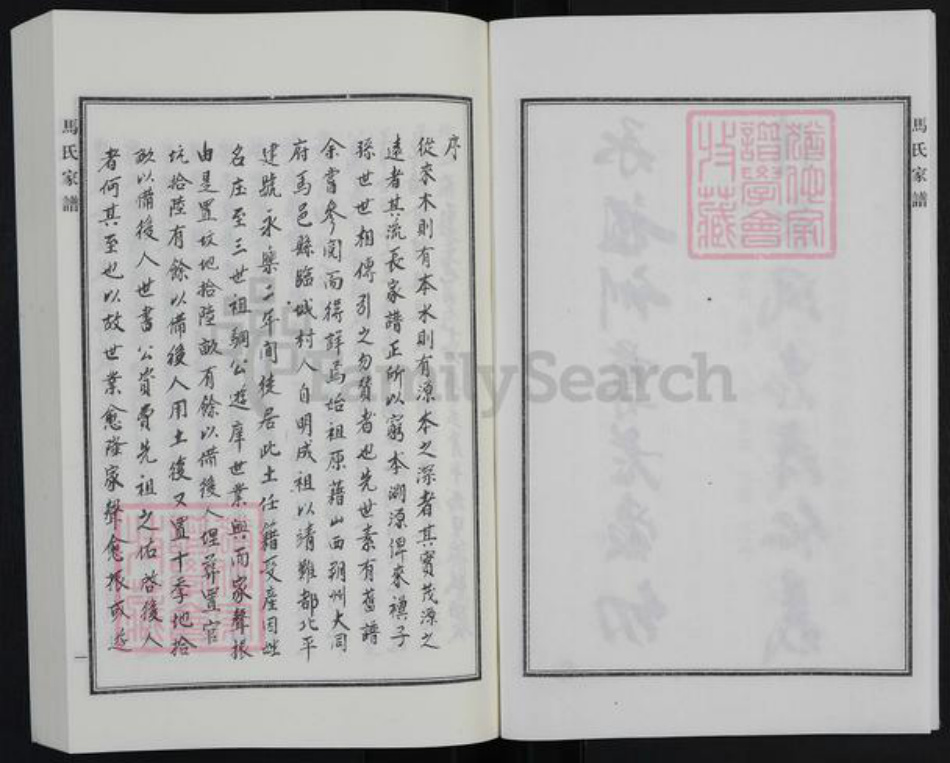 馬氏家譜
猶他家
譜學會
收藏
序
從來木則有本水則有源本之深者其實茂源之
遠者其流長家譜正所以窮本溯源俾來禩子
孫世世相傳引之勿替者也先世素有舊譜
余嘗參閱而得詳焉始祖原籍山西朔州大同
府馬邑縣臨城村人自明成祖以靖難都北平
建號永樂二年間徙居此土任籍受產因姓
名庄至三世祖駉公遊庠世業興而家聲振
由是置坟地拾陸畝有餘以備後人埋葬置官
坑拾陸有餘以備後人用土後又置十季地拾
畝以備後人世書公資費先祖之佑啓後人
者何其至也以故世業愈隆家聲愈振或遊
馬氏家譜
一
FamilySearch